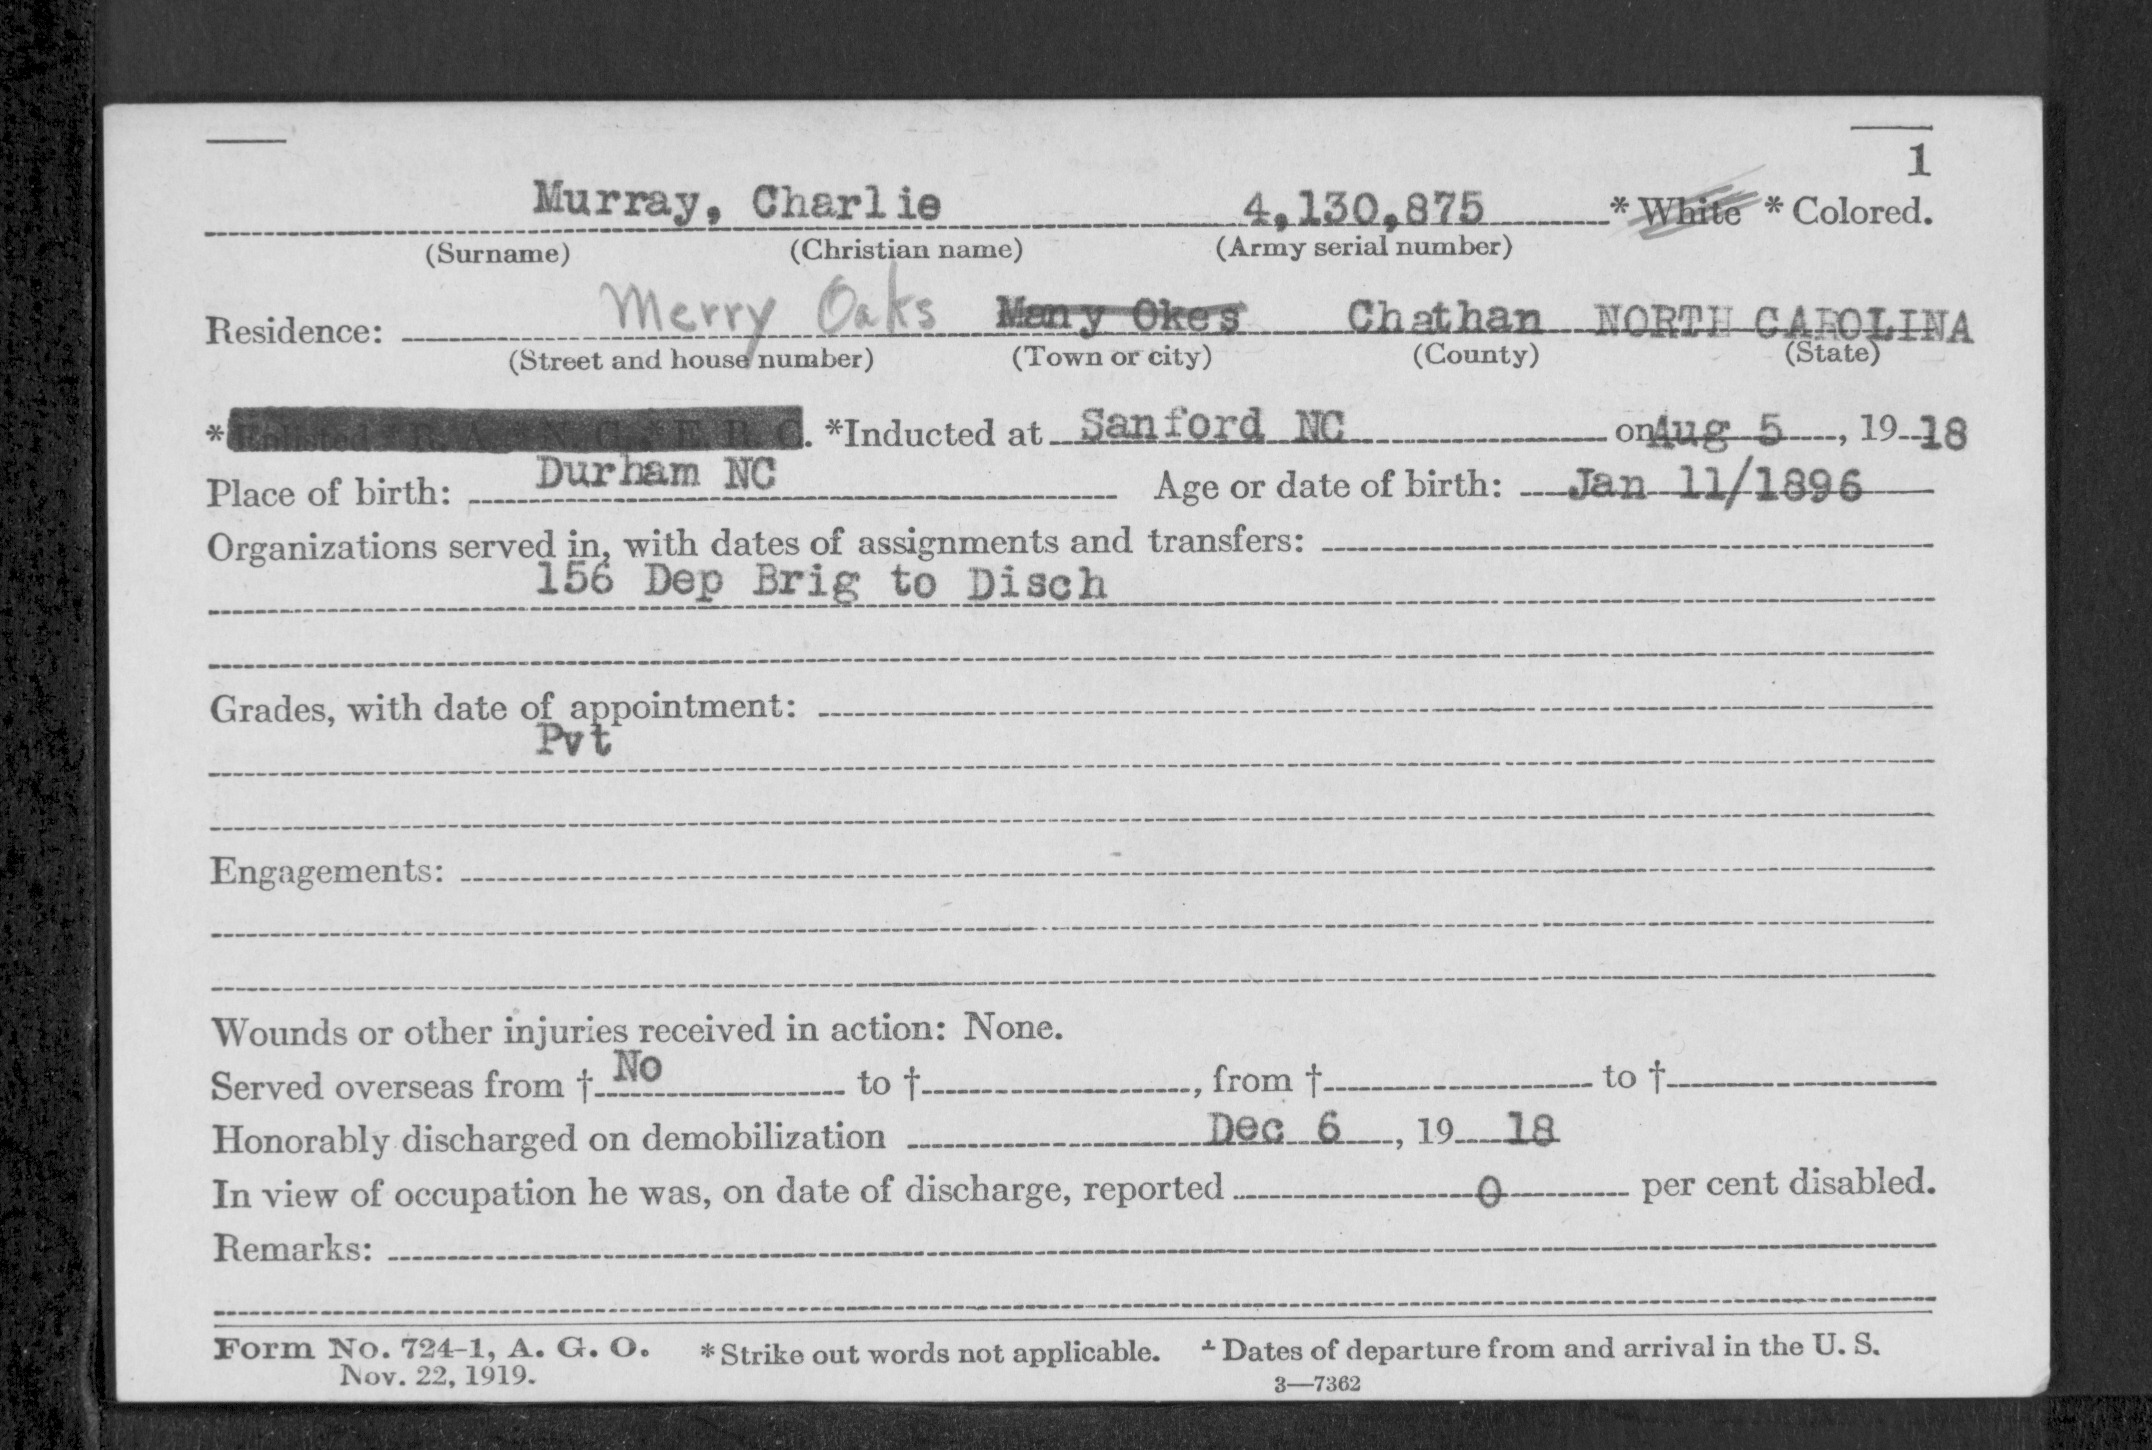 1
Murray, Charlie 4,130,875 * White * Colored.
(Surname) (Christian name) (Army serial number)
Residence: Merry Oaks Many Okes Chathan NORTH CAROLINA
(Street and house number) (Town or city) (County) (State)
*Enlisted R. A. * N. G. * E. R. C. *Inducted at Sanford NC on Aug 5, 19 18
Place of birth: Durham NC Age or date of birth: Jan 11/1896
Organizations served in, with dates of assignments and transfers:
156 Dep Brig to Disch
Grades, with date of appointment:
Pvt
Engagements:
Wounds or other injuries received in action: None.
Served overseas from † No to †, from † to †
Honorably discharged on demobilization Dec 6, 19 18
In view of occupation he was, on date of discharge, reported 0 per cent disabled.
Remarks:
Form No. 724-1, A. G. O. *Strike out words not applicable. † Dates of departure from and arrival in the U. S.
Nov. 22, 1919. 3—7362